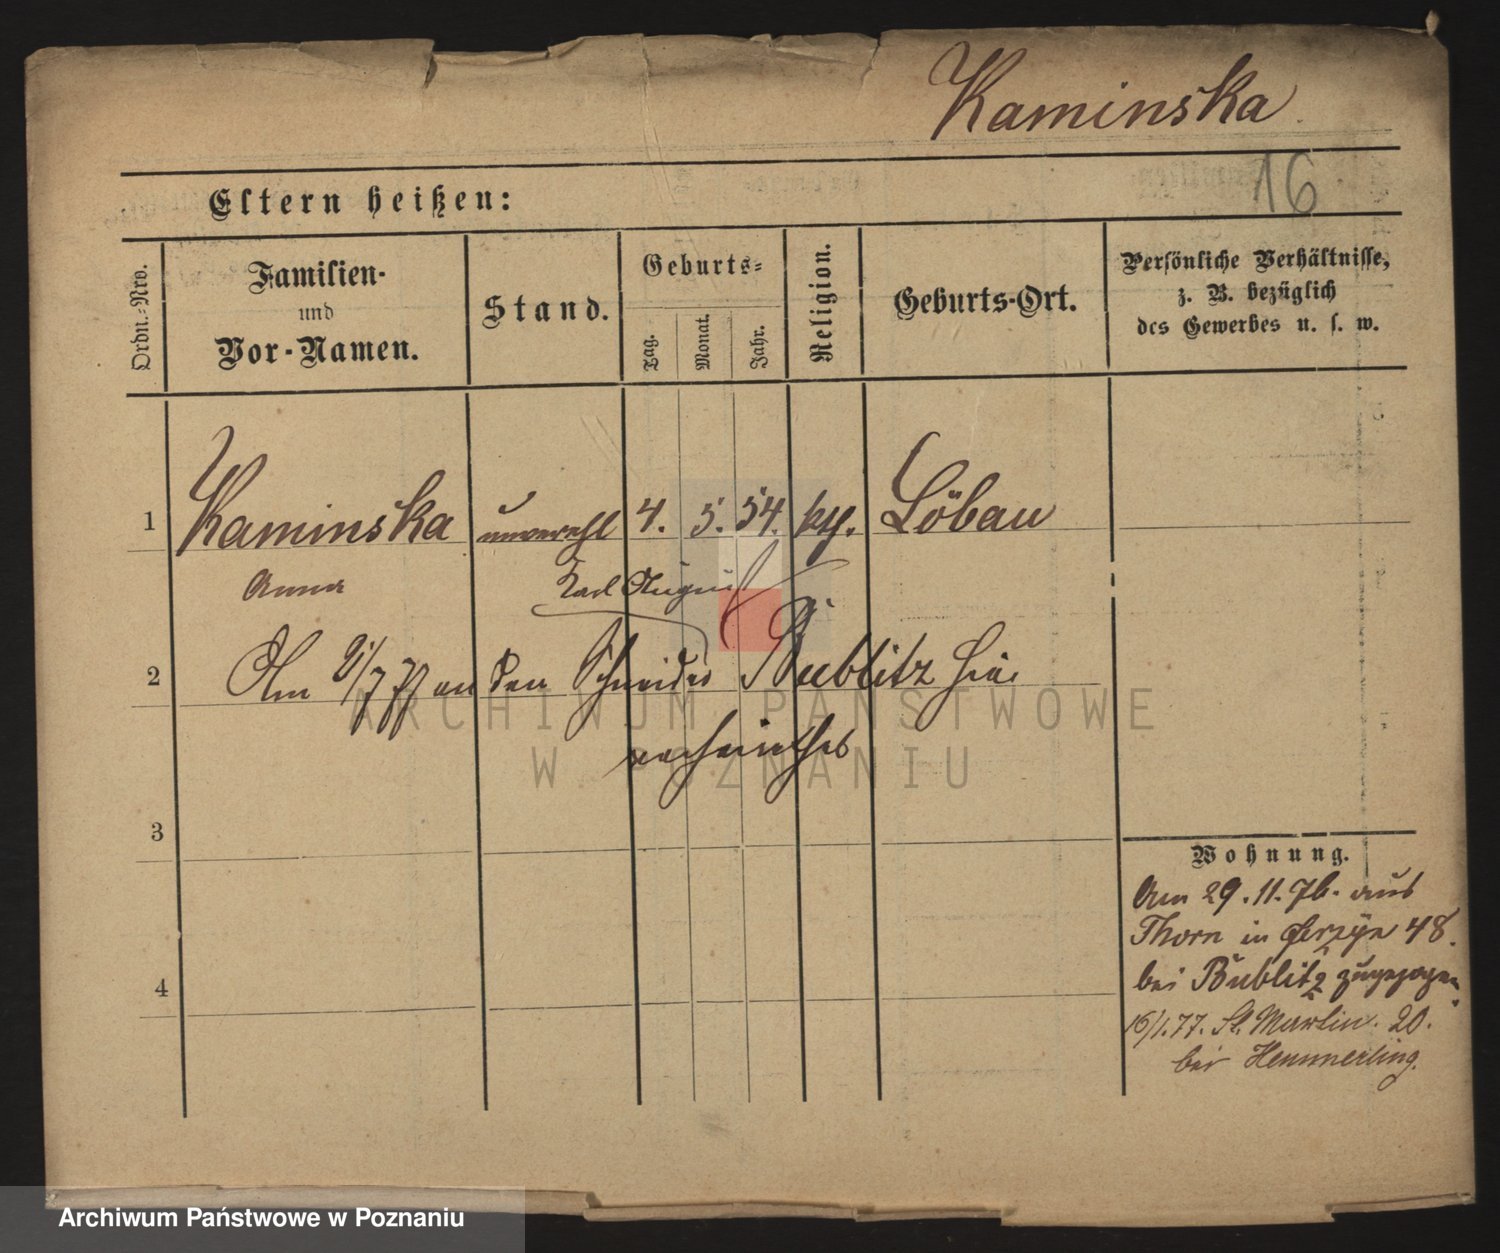 Kaminska
16
Eltern heißen:
Ordn.-Nro.
Familien-
und
Vor-Namen.
Stand.
Geburts-
Tag.
Monat.
Jahr.
Religion.
Geburts-Ort.
Persönliche Verhältnisse,
z. B. bezüglich
des Gewerbes u. s. w.
1 Kaminska unverehl 4. 5. 54. kth. Löbau
Anna
Karl August
2 Am 9/7 77 an den Schneider Bublitz hier
verheirathet
3
4
Wohnung.
Am 29.11.76. aus
Thorn in 48.
bei Bublitz zugezogen.
16/1.77. St. Martin. 20.
bei Hemmerling.
ARCHIWUM PAŃSTWOWE
W POZNANIU
Archiwum Państwowe w Poznaniu